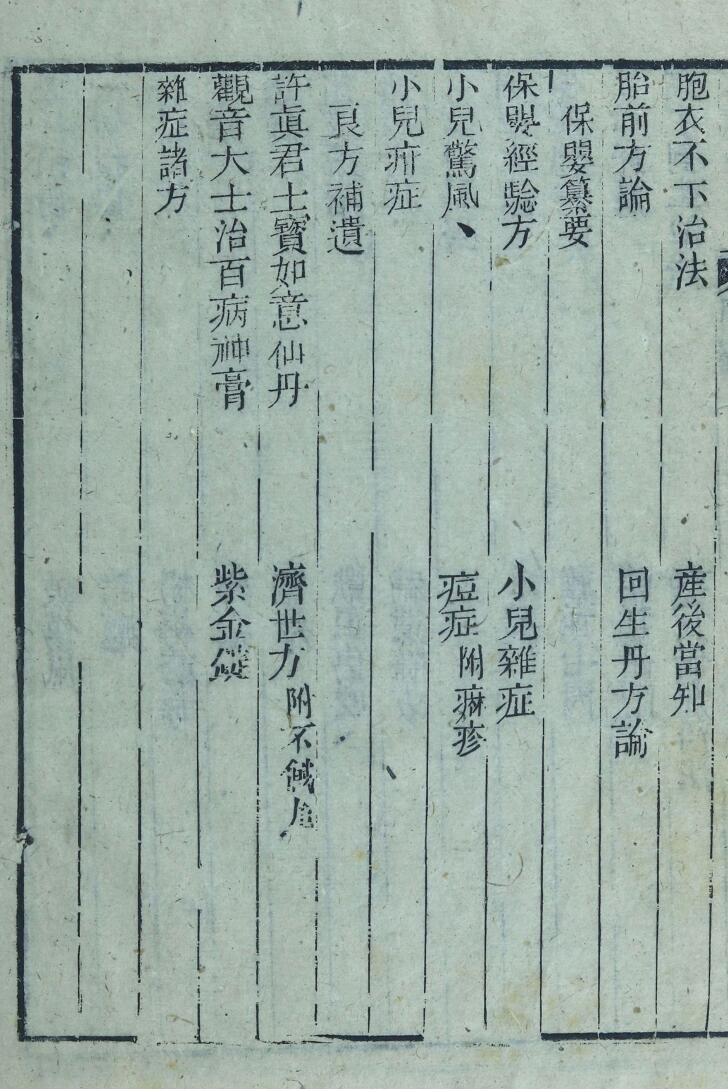 胞衣不下治法　産後當知
胎前方論　回生丹方論
保嬰纂要
保嬰經騐方　小兒雜症
小兒驚風　痘症附痳疹
小兒疳症
良方補遺
許眞君土寶如意仙丹　濟世方附不饑丸
觀音大士治百病神膏　紫金錠
雜症諸方